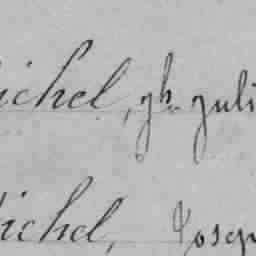 ichel, gb. Juli
ichel, Josep